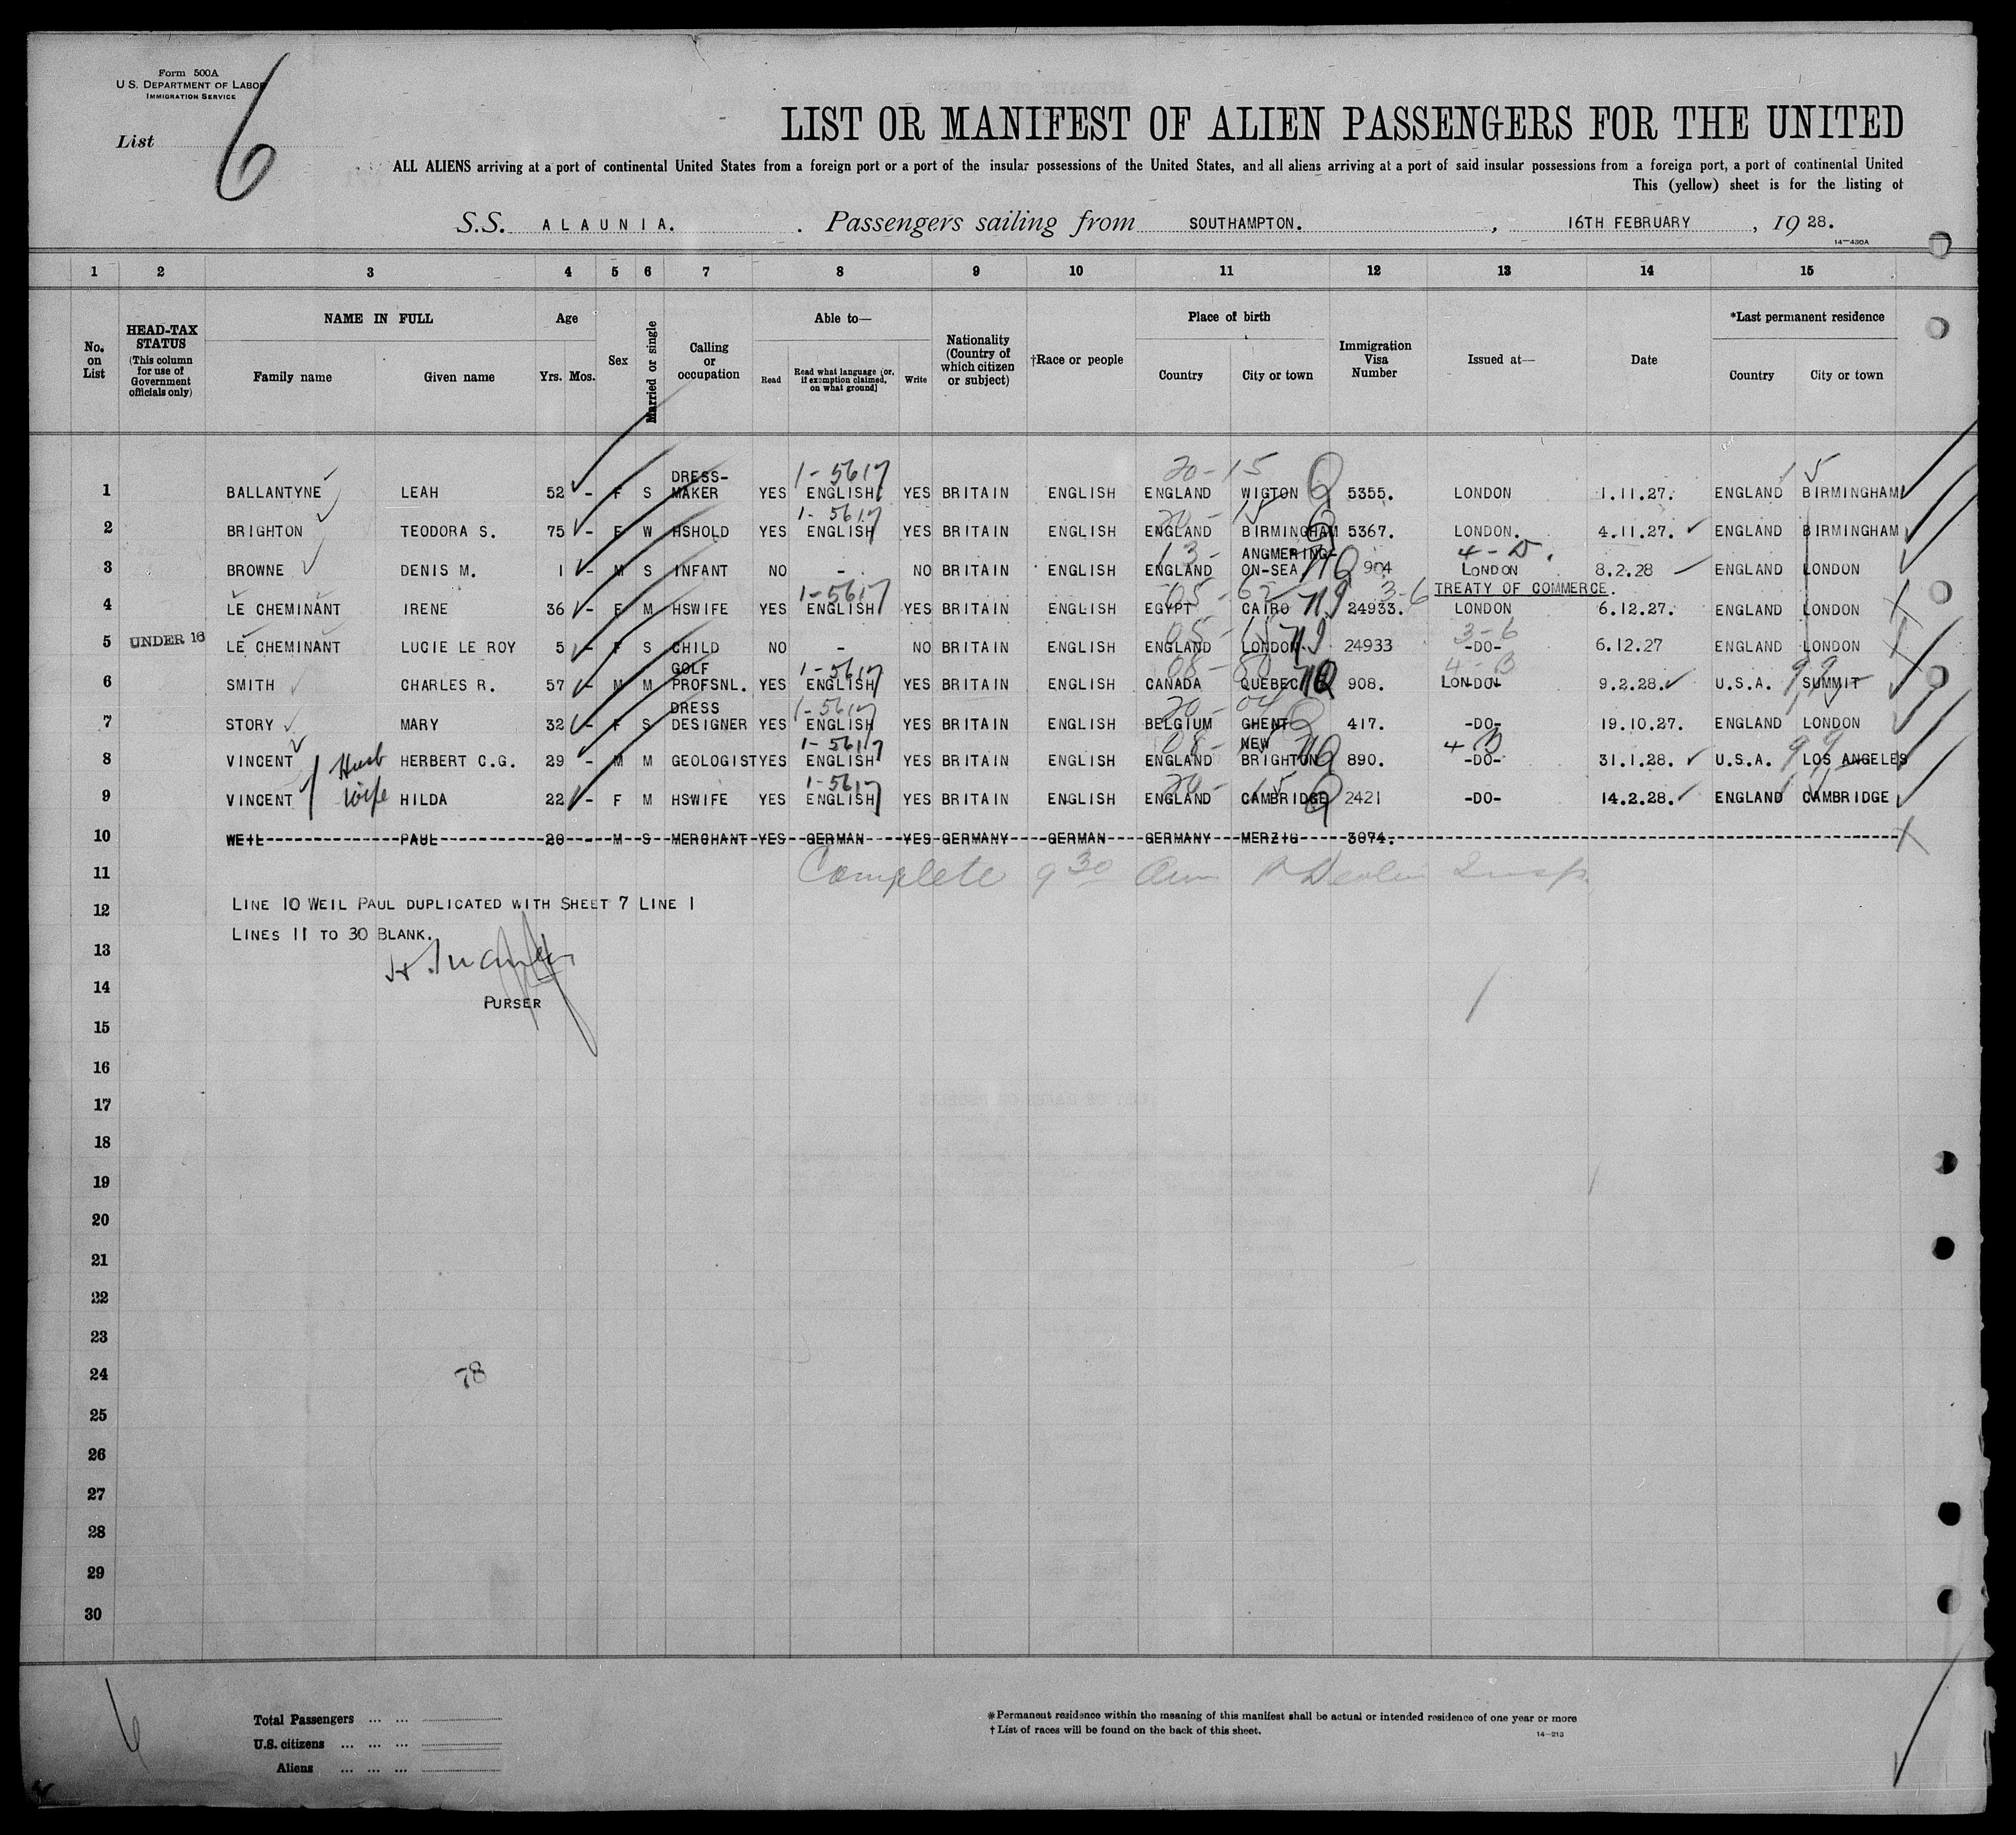 Form 500A
U.S. DEPARTMENT OF LABOR
IMMIGRATION SERVICE
List 6
LIST OR MANIFEST OF ALIEN PASSENGERS FOR THE UNITED
ALL ALIENS arriving at a port of continental United States from a foreign port or a port of the insular possessions of the United States, and all aliens arriving at a port of said insular possessions from a foreign port, a port of continental United
This (yellow) sheet is for the listing of
S.S. ALAUNIA. Passengers sailing from SOUTHAMPTON. , 16TH FEBRUARY , 1928.
14-430A
1 2 3 4 5 6 7 8 9 10 11 12 13 14 15
No. on List
HEAD-TAX STATUS (This column for use of Government officials only)
NAME IN FULL
Family name Given name
Age
Yrs. Mos.
Sex
Married or single
Calling or occupation
Able to—
Read Read what language [or, if exemption claimed, on what ground] Write
Nationality (Country of which citizen or subject)
†Race or people
Place of birth
Country City or town
Immigration Visa Number
Issued at—
Date
*Last permanent residence
Country City or town
1 BALLANTYNE LEAH 52 - F S DRESS-MAKER YES 1-5617 ENGLISH YES BRITAIN ENGLISH 20-15 ENGLAND WIGTON Q 5355. LONDON 1.11.27. ENGLAND 15 BIRMINGHAM
2 BRIGHTON TEODORA S. 75 - F W HSHOLD YES 1-5617 ENGLISH YES BRITAIN ENGLISH 20-15 ENGLAND BIRMINGHAM Q 5367. LONDON. 4.11.27. ENGLAND BIRMINGHAM
3 BROWNE DENIS M. 1 - M S INFANT NO - NO BRITAIN ENGLISH 13- ENGLAND ANGMERING-ON-SEA NQ 904 4-D. LONDON 8.2.28 ENGLAND LONDON
4 LE CHEMINANT IRENE 36 - F M HSWIFE YES 1-5617 ENGLISH YES BRITAIN ENGLISH 05-62 EGYPT CAIRO 24933. 3-6 TREATY OF COMMERCE. LONDON 6.12.27. ENGLAND LONDON
5 UNDER 16 LE CHEMINANT LUCIE LE ROY 5 - F S CHILD NO - NO BRITAIN ENGLISH 05-15 ENGLAND LONDON. 24933 3-6 -DO- 6.12.27 ENGLAND LONDON
6 SMITH CHARLES R. 57 - M M GOLF PROFSNL. YES 1-5617 ENGLISH YES BRITAIN ENGLISH 08-80 CANADA QUEBEC NQ 908. 4-B LONDON 9.2.28. U.S.A. 99 SUMMIT
7 STORY MARY 32 - F S DRESS DESIGNER YES 1-5617 ENGLISH YES BRITAIN ENGLISH 20-04 BELGIUM GHENT Q 417. -DO- 19.10.27. ENGLAND LONDON
8 VINCENT Husb HERBERT C.G. 29 - M M GEOLOGIST YES 1-5617 ENGLISH YES BRITAIN ENGLISH 08- ENGLAND NEW BRIGHTON NQ 890. 4 B -DO- 31.1.28. U.S.A. 99 LOS ANGELES
9 VINCENT Wife HILDA 22 - F M HSWIFE YES 1-5617 ENGLISH YES BRITAIN ENGLISH 20-15 ENGLAND CAMBRIDGE Q 2421 -DO- 14.2.28. ENGLAND CAMBRIDGE
10 WEIL PAUL 20 - M S MERCHANT YES GERMAN YES GERMANY GERMAN GERMANY MERZIG 3074.
11 Complete 9 30 Insp.
12 LINE 10 WEIL PAUL DUPLICATED WITH SHEET 7 LINE 1
LINES 11 TO 30 BLANK.
13
14 PURSER
15
16
17
18
19
20
21
22
23
24 78
25
26
27
28
29
30
6
Total Passengers ... ...
U.S. citizens ... ... ...
Aliens ... ... ...
*Permanent residence within the meaning of this manifest shall be actual or intended residence of one year or more
†List of races will be found on the back of this sheet.
14-213